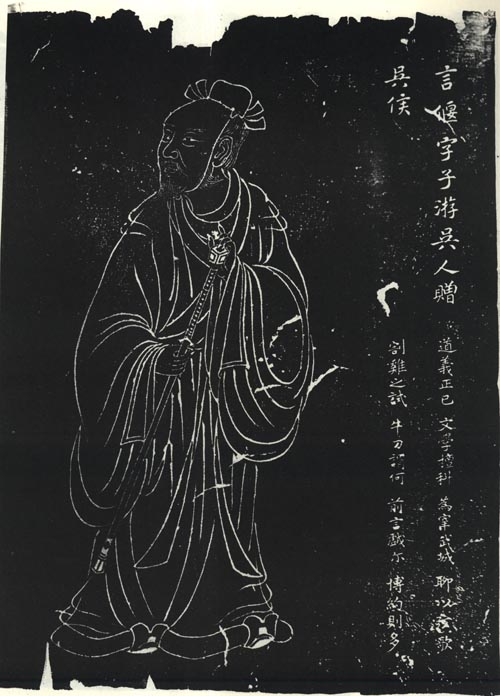 言偃字子游吳人贈
吳侯
道義正己 文學擅科 為宰武城 聊以歌
割雞之試 牛刀謂何 前言戲尔 博約則多